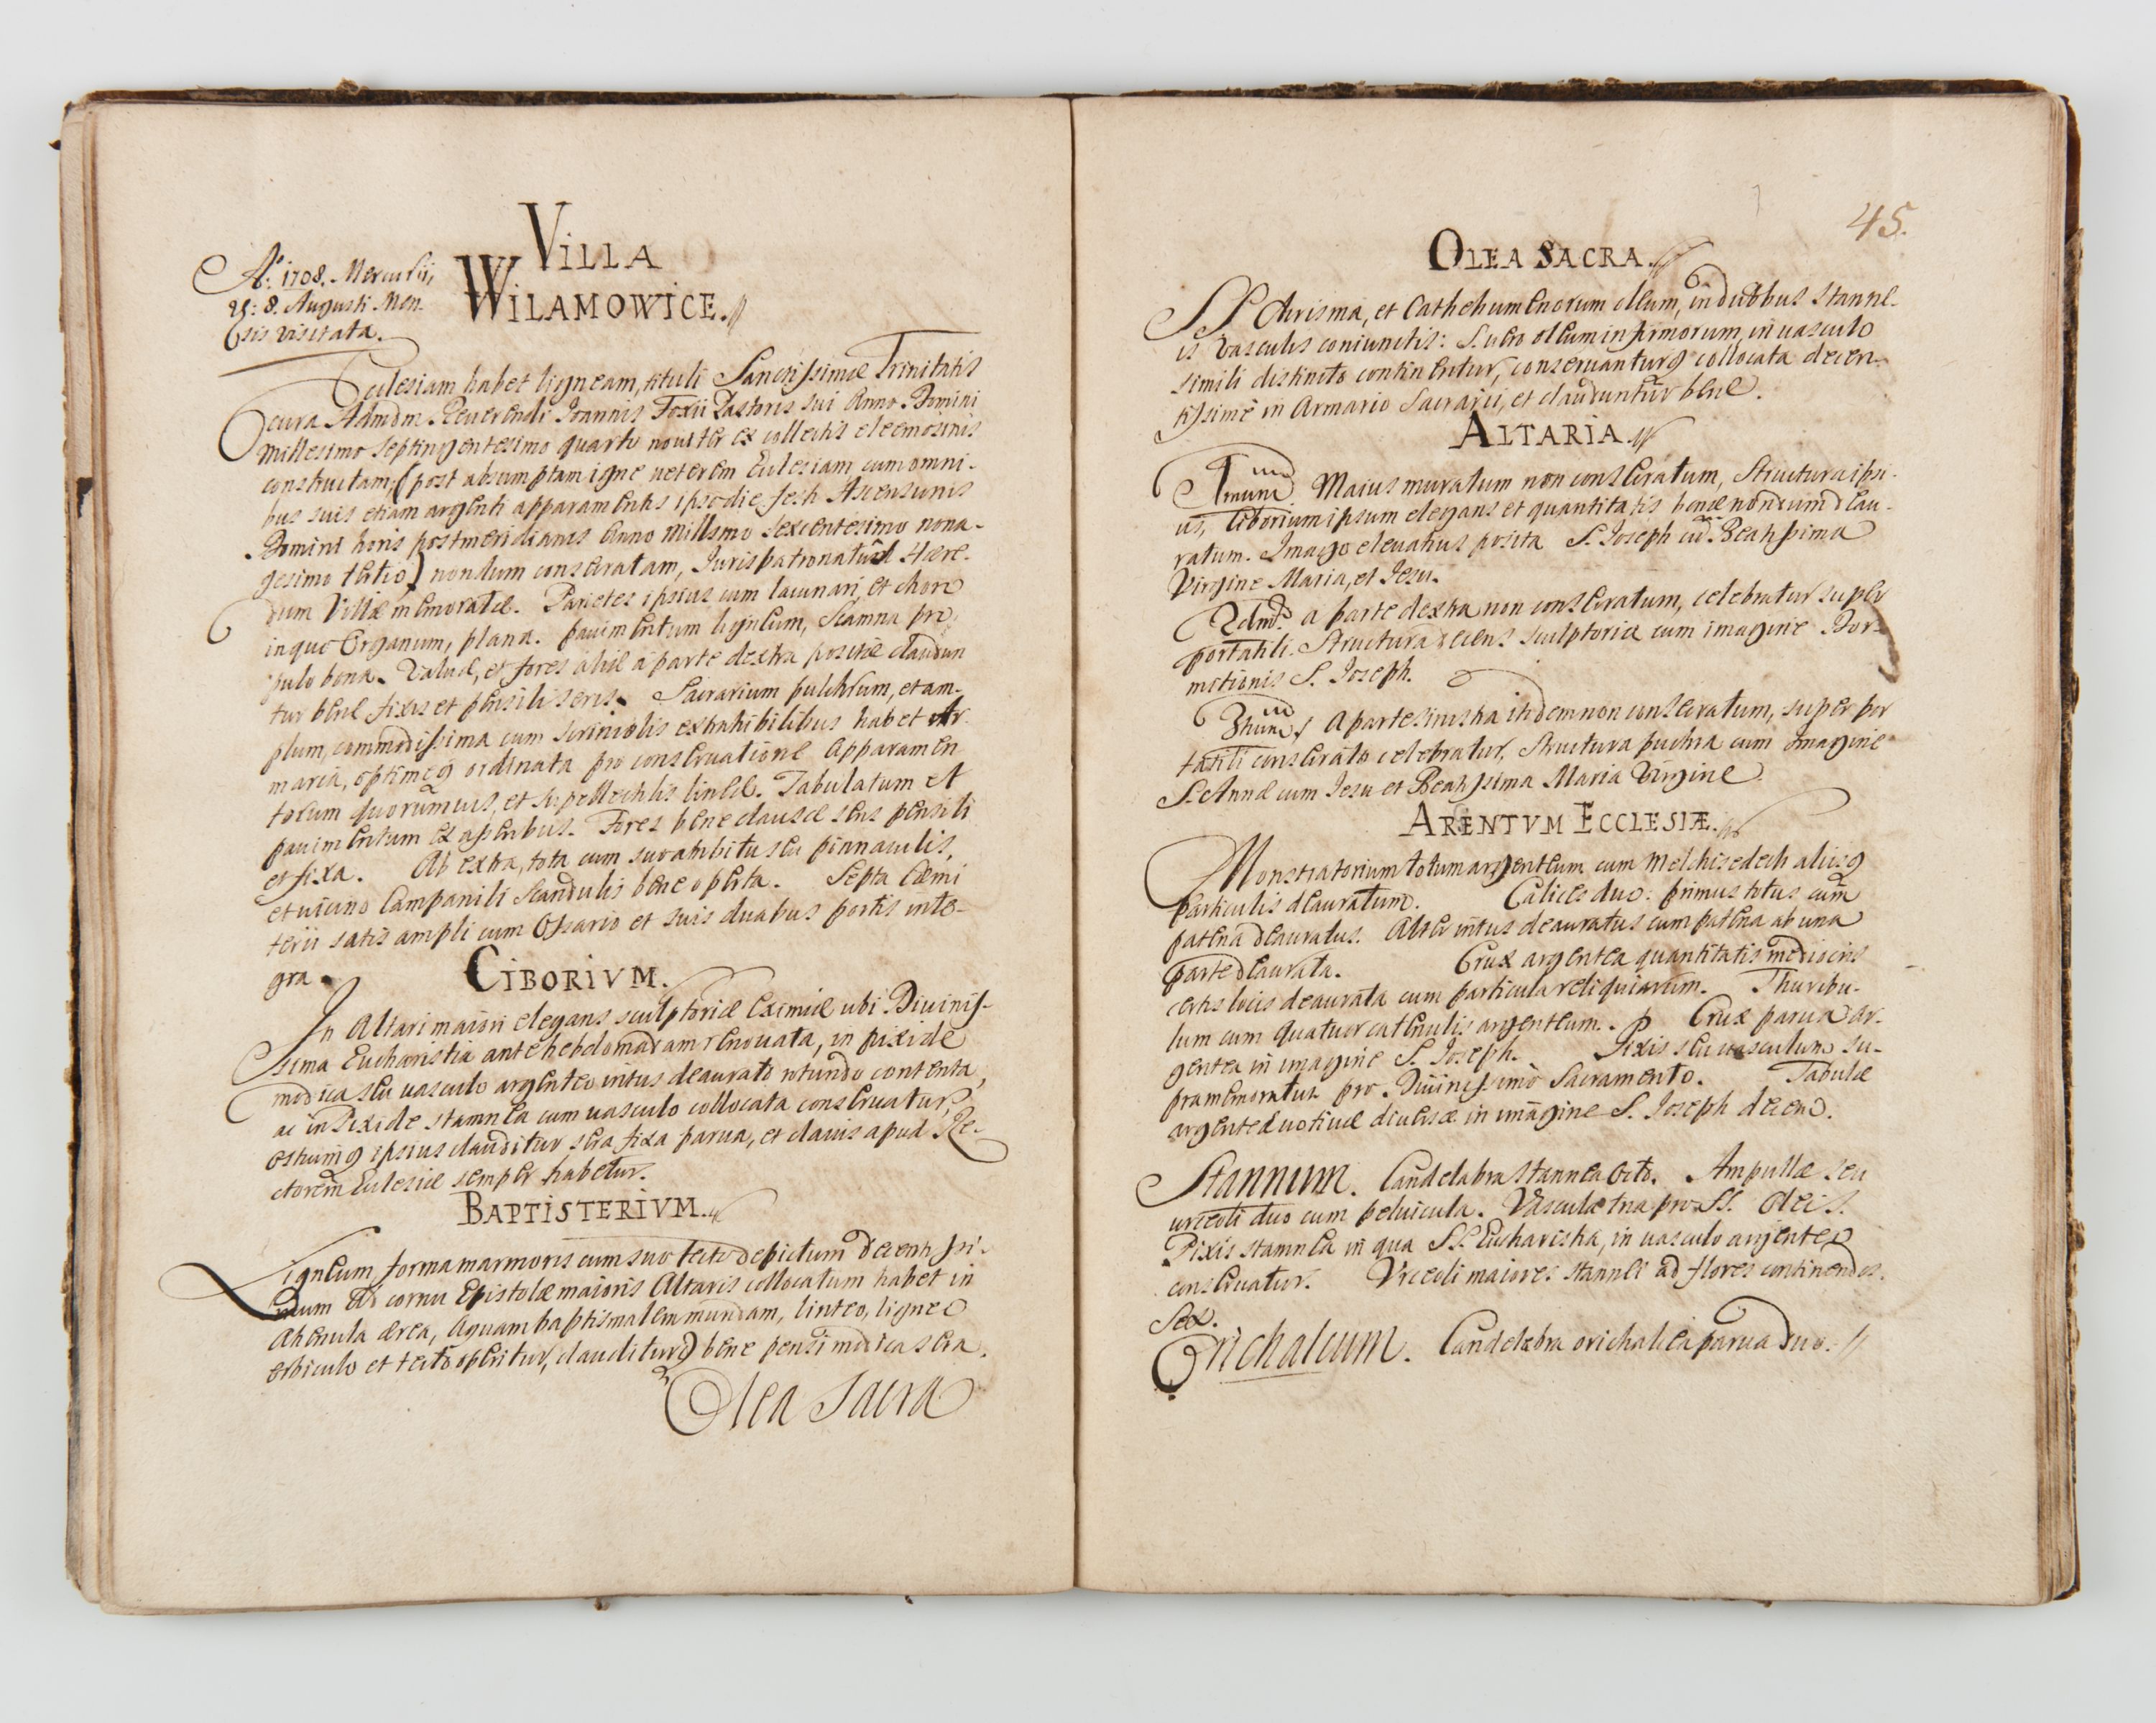 VILLA
WILAMOWICE.
Aº: 1708. Mercurii,
8. Augusti Men-
sis visitata.
Ecclesiam habet ligneam, tituli Sanctissimæ Trinitatis
cura Admdm. Reverendi Joannis Foxii Pastoris sui Anno Domini
Millesimo Septingentesimo quarto noviter ex collectis eleemosinis
constructam, (post absumptam igne veterem Ecclesiam cum omni-
bus suis etiam argenti apparamentis ipso die festi Ascensionis
Domini horis postmeridianis Anno Millesimo Sexcentesimo nona-
gesimo tertio) nondum consecratam, Jurispatronatus Hære-
dum Villæ memoratæ. Parietes ipsius cum lacunari, et choro
in quo Organum, plana. pavimentum ligneum, Scamna pro
pulo bona. Valvæ, et fores aliæ a parte dextra positæ claudun
tur bene fixis et pensili seris. Sacrarium pulchrum, et am-
plum, commodissima cum scriniolis extrahibilibus habet Ar-
maria, optimeq ordinata pro conservatione Apparamen
torum quorumvis, et supellectilis lineæ. Tabulatum et
pavimentum ex asseribus. Fores bene clausæ sera pensili
et fixa. Ab extra, tota cum suo ambitu seu pinnaculis,
et vicino Campanili Scandulis bene operta. Septa Cæmi
terii satis ampli cum Ossario et suis duabus portis inte-
gra.
CIBORIVM.
In Altari maiori elegans sculptoriæ eximiæ ubi Divinis-
sima Eucharistia ante hebdomadam renovata, in pixide
modica seu vasculo argenteo intus deaurato rotundo contenta,
ac in Pixide stamnea cum vasculo collocata conservatur,
Ostiumq ipsius clauditur sera fixa parva, et clavis apud Re-
ctorem Eclesiæ semper habetur.
BAPTISTERIVM.
Ligneum, forma marmoris cum suo tecto depictum decenti, si-
tum ad cornu Epistolæ maioris Altaris collocatum habet in
Ahenula ærea, Aquam baptismalem mundam, linteo, ligneo
orbiculo et tecto operitur, clauditurq bene pensi modica sera.
Olea Sacra
45.
OLEA SACRA.
SS Chrisma, et Cathehumenorum oleum, in duobus stanne-
is vasculis coniunctis: S. vero oleum infirmorum in vasculo
simili distincto continentur, conservanturq collocata decen-
tissime in Armario Sacrarii, et clauduntur bene.
ALTARIA
Primum Maius muratum non consecratum, Structura ipsi-
us, Ciborium ipsum elegans et quantitatis bonæ nondum deau-
ratum. Imago elevatius posita S. Joseph cū Beatissima
Virgine Maria, et Jesu.
2dum a parte dextra non consecratum, celebratur super
portatili. Structura decens sculptoriæ cum imagine Dor-
mitionis S. Joseph.
3tium A parte sinistra itidem non consecratum, super por
tatili consecrato celebratur, Structura puchra cum Imagine
S. Annæ cum Jesu et Beatissima Maria Virgine
ARENTVM ECCLESIÆ.
Monstratorium totum argenteum cum Melchisedech aliisq
particulis deauratum. Calices duo: primus totus cum
patena deauratus. Alter intus deauratus cum patena ab una
parte deaurata. Crux argentea quantitatis mediocris
certis locis deaurata cum particula reliquiarum. Thuribu-
lum cum quatuor catenulis argenteum. Crux parva ar-
gentea in imagine S. Joseph. Pixis seu vasculum su-
pramemoratum pro Divinissimo Sacramento. Tabulæ
argenteæ votivæ diversæ in imagine S. Joseph decem.
Stannum. Candelabra stannea octo. Ampullæ seu
urceoli duo cum pelvicula. Vascula tria pro SS. Oleis.
Pixis stamnea in qua SS. Eucharistia, in vasculo argenteo
conservatur. Vrceoli maiores stannei ad flores continendos.
Sex.
Orichalcum. Candelabra orichalcea parva duo.